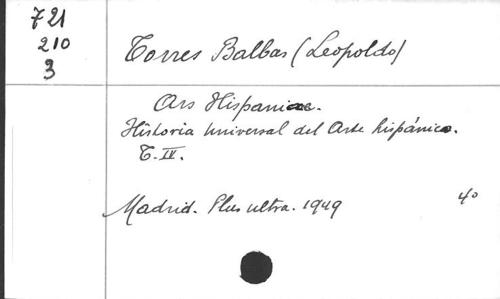 721
210
3
Torres Balbas (Leopoldo)
Ars Hispaniae.
Historia universal del Arte hispánico.
T. IV.
Madrid. Plus ultra. 1949 4º